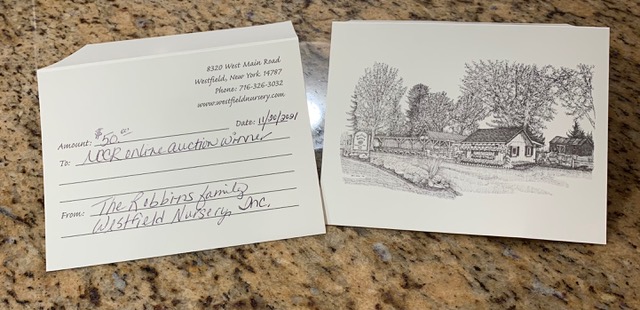 8320 West Main Road
Westfield, New York 14787
Phone: 716-326-3032
www.westfieldnursery.com
Amount: $50.00 Date: 11/30/2021
To: NCCR online auction winner
From: The Robbins family
Westfield Nursery, Inc.